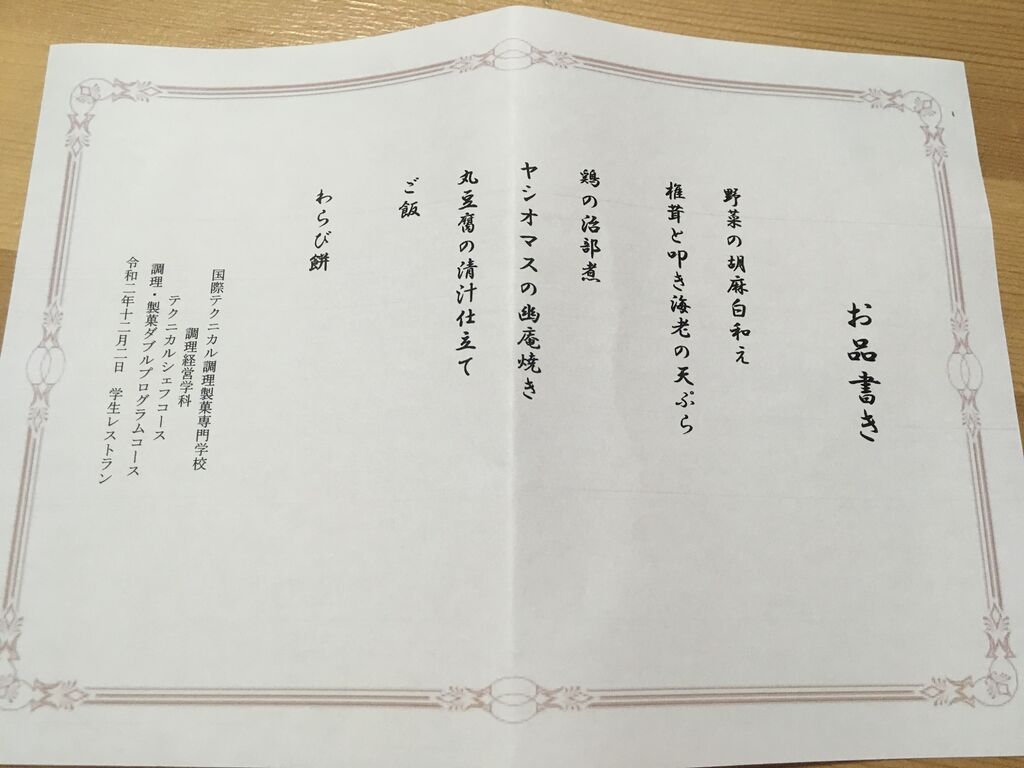 お品書き
野菜の胡麻白和え
椎茸と叩き海老の天ぷら
鶏の治部煮
ヤシオマスの幽庵焼き
丸豆腐の清汁仕立て
ご飯
わらび餅
国際テクニカル調理製菓専門学校
調理経営学科
テクニカルシェフコース
調理・製菓ダブルプログラムコース
令和二年十二月二日 学生レストラン